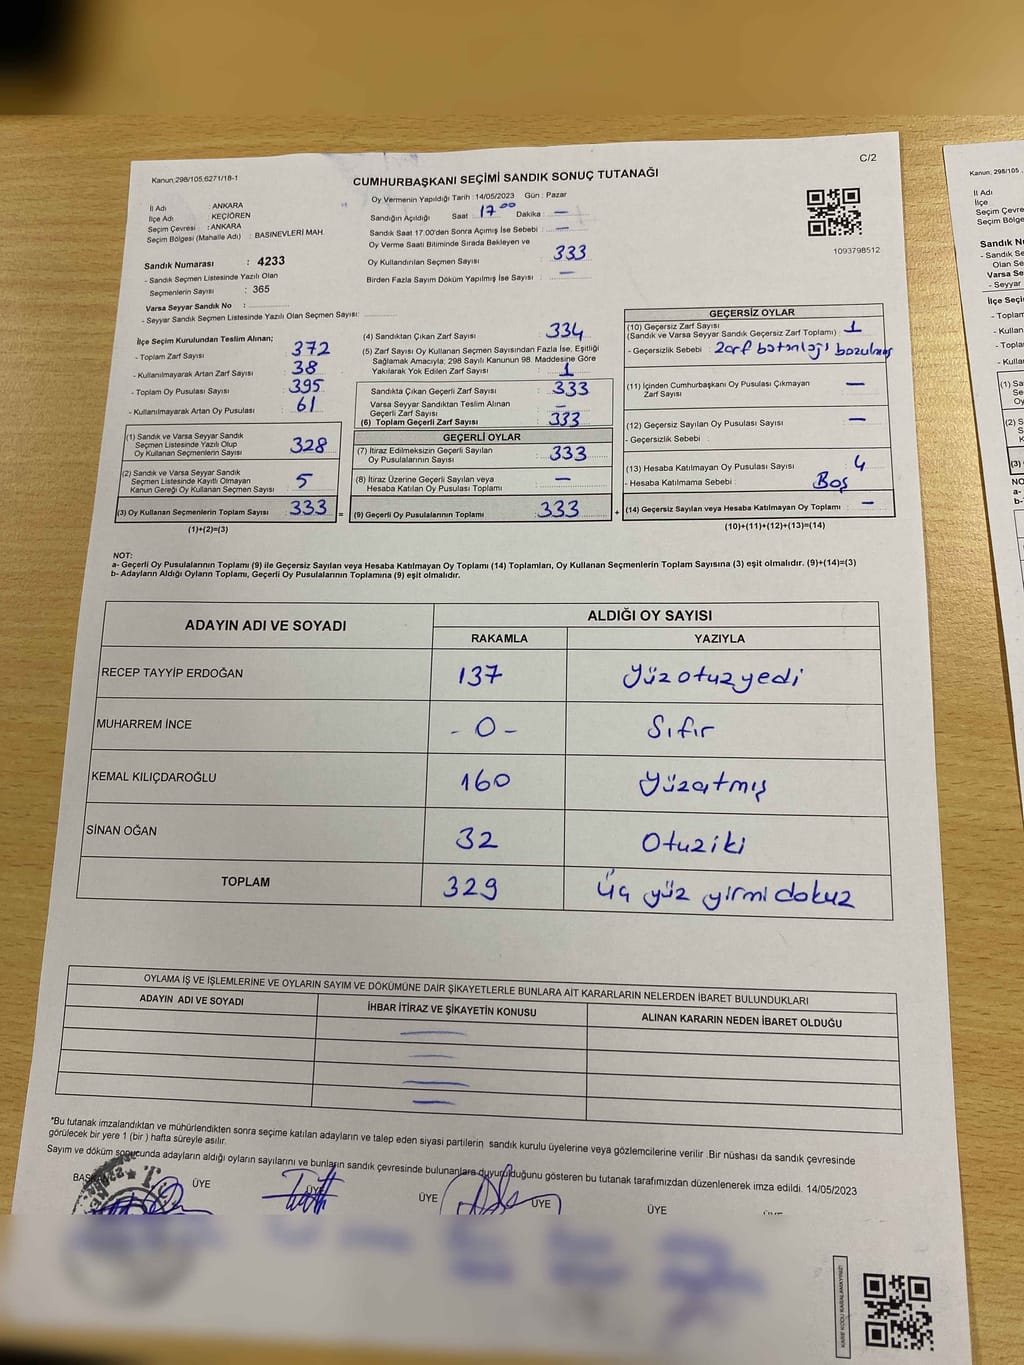 C/2
Kanun, 298/105,6271/18-1
CUMHURBAŞKANI SEÇİMİ SANDIK SONUÇ TUTANAĞI
İl Adı : ANKARA
İlçe Adı : KEÇİÖREN
Seçim Çevresi : ANKARA
Seçim Bölgesi (Mahalle Adı) : BASINEVLERİ MAH.
Sandık Numarası : 4233
- Sandık Seçmen Listesinde Yazılı Olan
Seçmenlerin Sayısı : 365
Varsa Seyyar Sandık No :
- Seyyar Sandık Seçmen Listesinde Yazılı Olan Seçmen Sayısı:
Oy Vermenin Yapıldığı Tarih : 14/05/2023 Gün : Pazar
Sandığın Açıldığı Saat : 17 00 Dakika : —
Sandık Saat 17.00'den Sonra Açımış İse Sebebi : —
Oy Verme Saati Bitiminde Sırada Bekleyen ve
Oy Kullandırılan Seçmen Sayısı : 333
Birden Fazla Sayım Döküm Yapılmış İse Sayısı : —
1093798512
İlçe Seçim Kurulundan Teslim Alınan;
- Toplam Zarf Sayısı : 372
- Kullanılmayarak Artan Zarf Sayısı : 38
- Toplam Oy Pusulası Sayısı : 395
- Kullanılmayarak Artan Oy Pusulası : 61
(1) Sandık ve Varsa Seyyar Sandık
Seçmen Listesinde Yazılı Olup
Oy Kullanan Seçmenlerin Sayısı : 328
(2) Sandık ve Varsa Seyyar Sandık
Seçmen Listesinde Kayıtlı Olmayan
Kanun Gereği Oy Kullanan Seçmen Sayısı : 5
(3) Oy Kullanan Seçmenlerin Toplam Sayısı : 333
=
(1)+(2)=(3)
(4) Sandıktan Çıkan Zarf Sayısı : 334
(5) Zarf Sayısı Oy Kullanan Seçmen Sayısından Fazla İse, Eşitliği
Sağlamak Amacıyla; 298 Sayılı Kanunun 98. Maddesine Göre
Yakılarak Yok Edilen Zarf Sayısı : 1
Sandıkta Çıkan Geçerli Zarf Sayısı : 333
Varsa Seyyar Sandıktan Teslim Alınan
Geçerli Zarf Sayısı : —
(6) Toplam Geçerli Zarf Sayısı : 333
GEÇERLİ OYLAR
(7) İtiraz Edilmeksizin Geçerli Sayılan
Oy Pusulalarının Sayısı : 333
(8) İtiraz Üzerine Geçerli Sayılan veya
Hesaba Katılan Oy Pusulası Toplamı : —
(9) Geçerli Oy Pusulalarının Toplamı : 333
+
GEÇERSİZ OYLAR
(10) Geçersiz Zarf Sayısı : 1
(Sandık ve Varsa Seyyar Sandık Geçersiz Zarf Toplamı)
- Geçersizlik Sebebi : Zarf bütünlüğü bozulmuş
(11) İçinden Cumhurbaşkanı Oy Pusulası Çıkmayan
Zarf Sayısı : —
(12) Geçersiz Sayılan Oy Pusulası Sayısı : —
- Geçersizlik Sebebi :
(13) Hesaba Katılmayan Oy Pusulası Sayısı : 4
- Hesaba Katılmama Sebebi : Boş
(14) Geçersiz Sayılan veya Hesaba Katılmayan Oy Toplamı : —
(10)+(11)+(12)+(13)=(14)
NOT:
a- Geçerli Oy Pusulalarının Toplamı (9) ile Geçersiz Sayılan veya Hesaba Katılmayan Oy Toplamı (14) Toplamları, Oy Kullanan Seçmenlerin Toplam Sayısına (3) eşit olmalıdır. (9)+(14)=(3)
b- Adayların Aldığı Oyların Toplamı, Geçerli Oy Pusulalarının Toplamına (9) eşit olmalıdır.
ADAYIN ADI VE SOYADI
ALDIĞI OY SAYISI
RAKAMLA YAZIYLA
RECEP TAYYİP ERDOĞAN 137 Yüzotuzyedi
MUHARREM İNCE - 0 - Sıfır
KEMAL KILIÇDAROĞLU 160 Yüzatmış
SİNAN OĞAN 32 Otuziki
TOPLAM 329 Üç yüz yirmi dokuz
OYLAMA İŞ VE İŞLEMLERİNE VE OYLARIN SAYIM VE DÖKÜMÜNE DAİR ŞİKAYETLERLE BUNLARA AİT KARARLARIN NELERDEN İBARET BULUNDUKLARI
ADAYIN ADI VE SOYADI İHBAR İTİRAZ VE ŞİKAYETİN KONUSU ALINAN KARARIN NEDEN İBARET OLDUĞU
*Bu tutanak imzalandıktan ve mühürlendikten sonra seçime katılan adayların ve talep eden siyasi partilerin sandık kurulu üyelerine veya gözlemcilerine verilir .Bir nüshası da sandık çevresinde
görülecek bir yere 1 (bir ) hafta süreyle asılır.
Sayım ve döküm sonucunda adayların aldığı oyların sayılarını ve bunların sandık çevresinde bulunanlara duyurulduğunu gösteren bu tutanak tarafımızdan düzenlenerek imza edildi. 14/05/2023
BAŞKAN ÜYE ÜYE ÜYE ÜYE ÜYE ÜYE
KARE KODU KARALAMAYINIZ!
Kanun, 298/105
İl Adı
İlçe
Seçim Çevre
Seçim Bölge